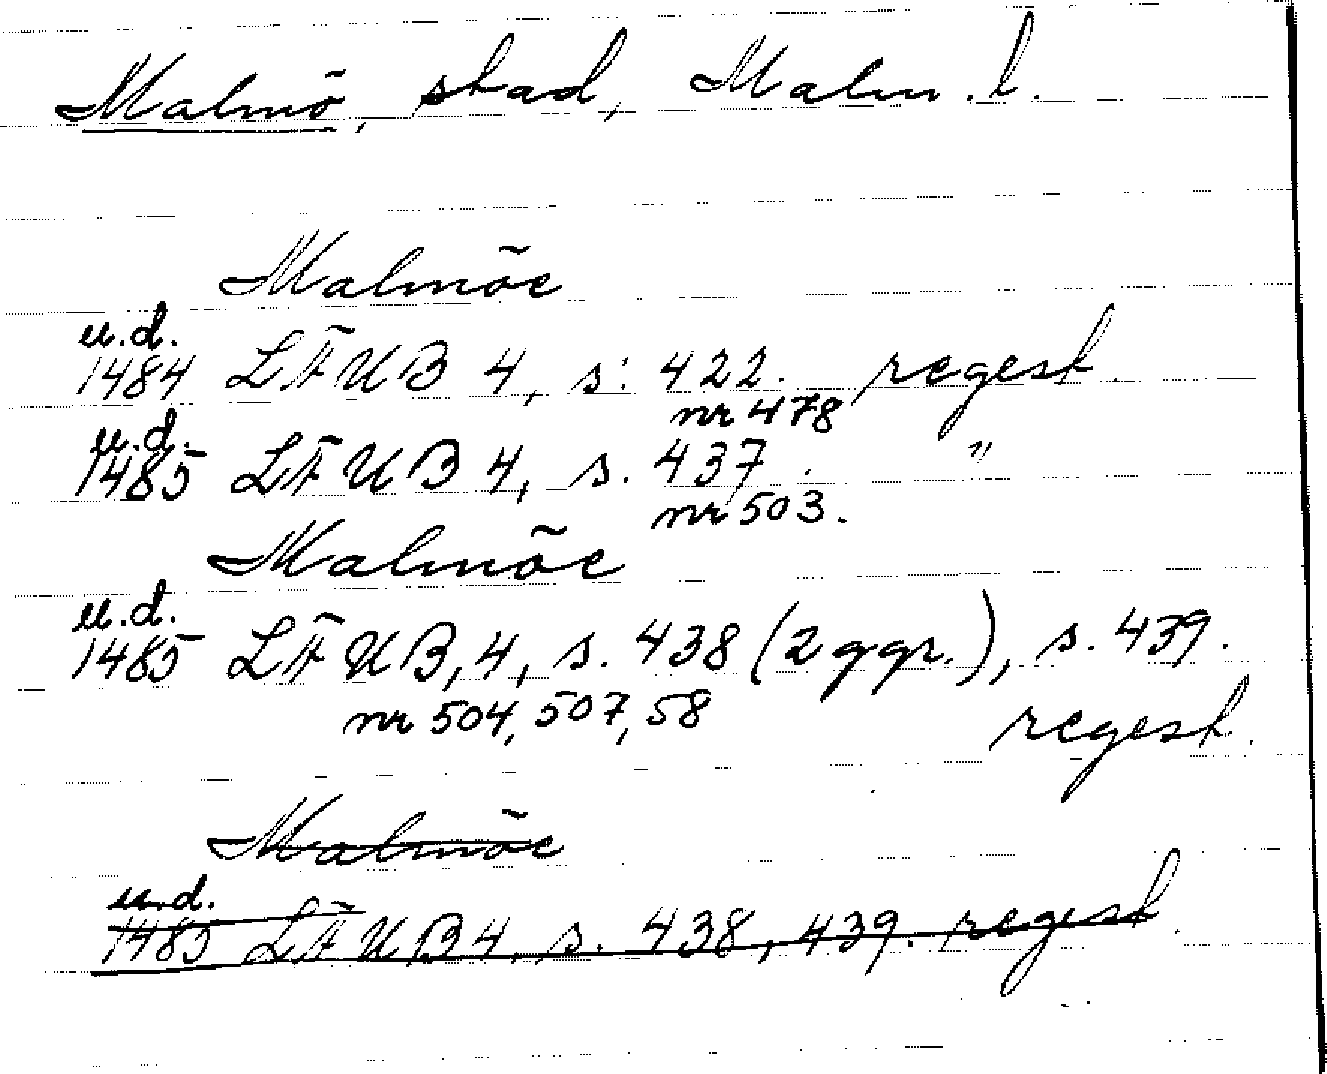 Malmö, stad, Malm. l.
Malmöe
u.d.
1484 LÄUB 4, s. 422. regest
nr 478
u.d.
1485 LÄUB 4, s. 437. "
nr 503.
Malmöe
u.d.
1485 LÄUB, 4, s. 438 (2 ggr.), s. 439.
nr 504, 507, 58 regest.
Malmöe
u.d.
1485 LÄUB 4, s. 438, 439. regest